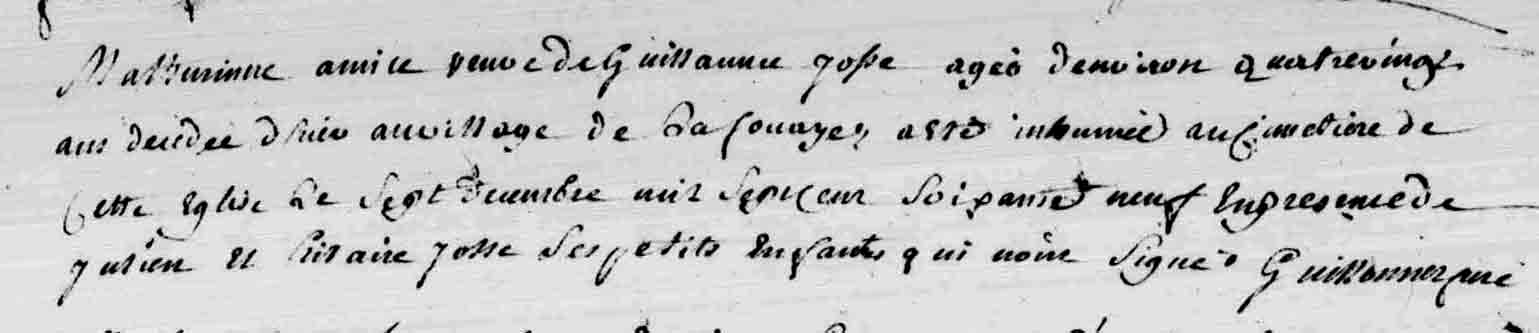 Mathurinne amice veuve de Guillaume josse ageé denviron quatrevingt
ans decedee dhier au village de La fouaye, a eté inhumée au Cimetiere de
Cette Eglise Le Sept decembre mil Sept Cent Soixante neuf En presence de
julien et hilaire josse Ses petits Enfants qui nont Signé Guillonner curé